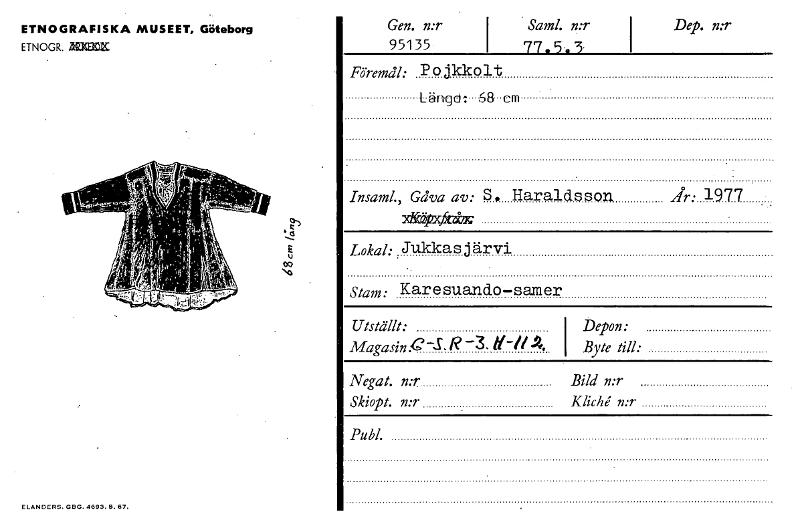 ETNOGRAFISKA MUSEET, Göteborg
ETNOGR.
68 cm lång
ELANDERS. GBG. 4693. 8. 67.
Gen. n:r Saml. n:r Dep. n:r
95135 77.5.3
Föremål: Pojkkolt
Längd: 68 cm
Insaml., Gåva av: S. Haraldsson År: 1977
Köp från:
Lokal: Jukkasjärvi
Stam: Karesuando-samer
Utställt: Depon:
Magasin: C-S.R-3.H-112. Byte till:
Negat. n:r Bild n:r
Skiopt. n:r Kliché n:r
Publ.